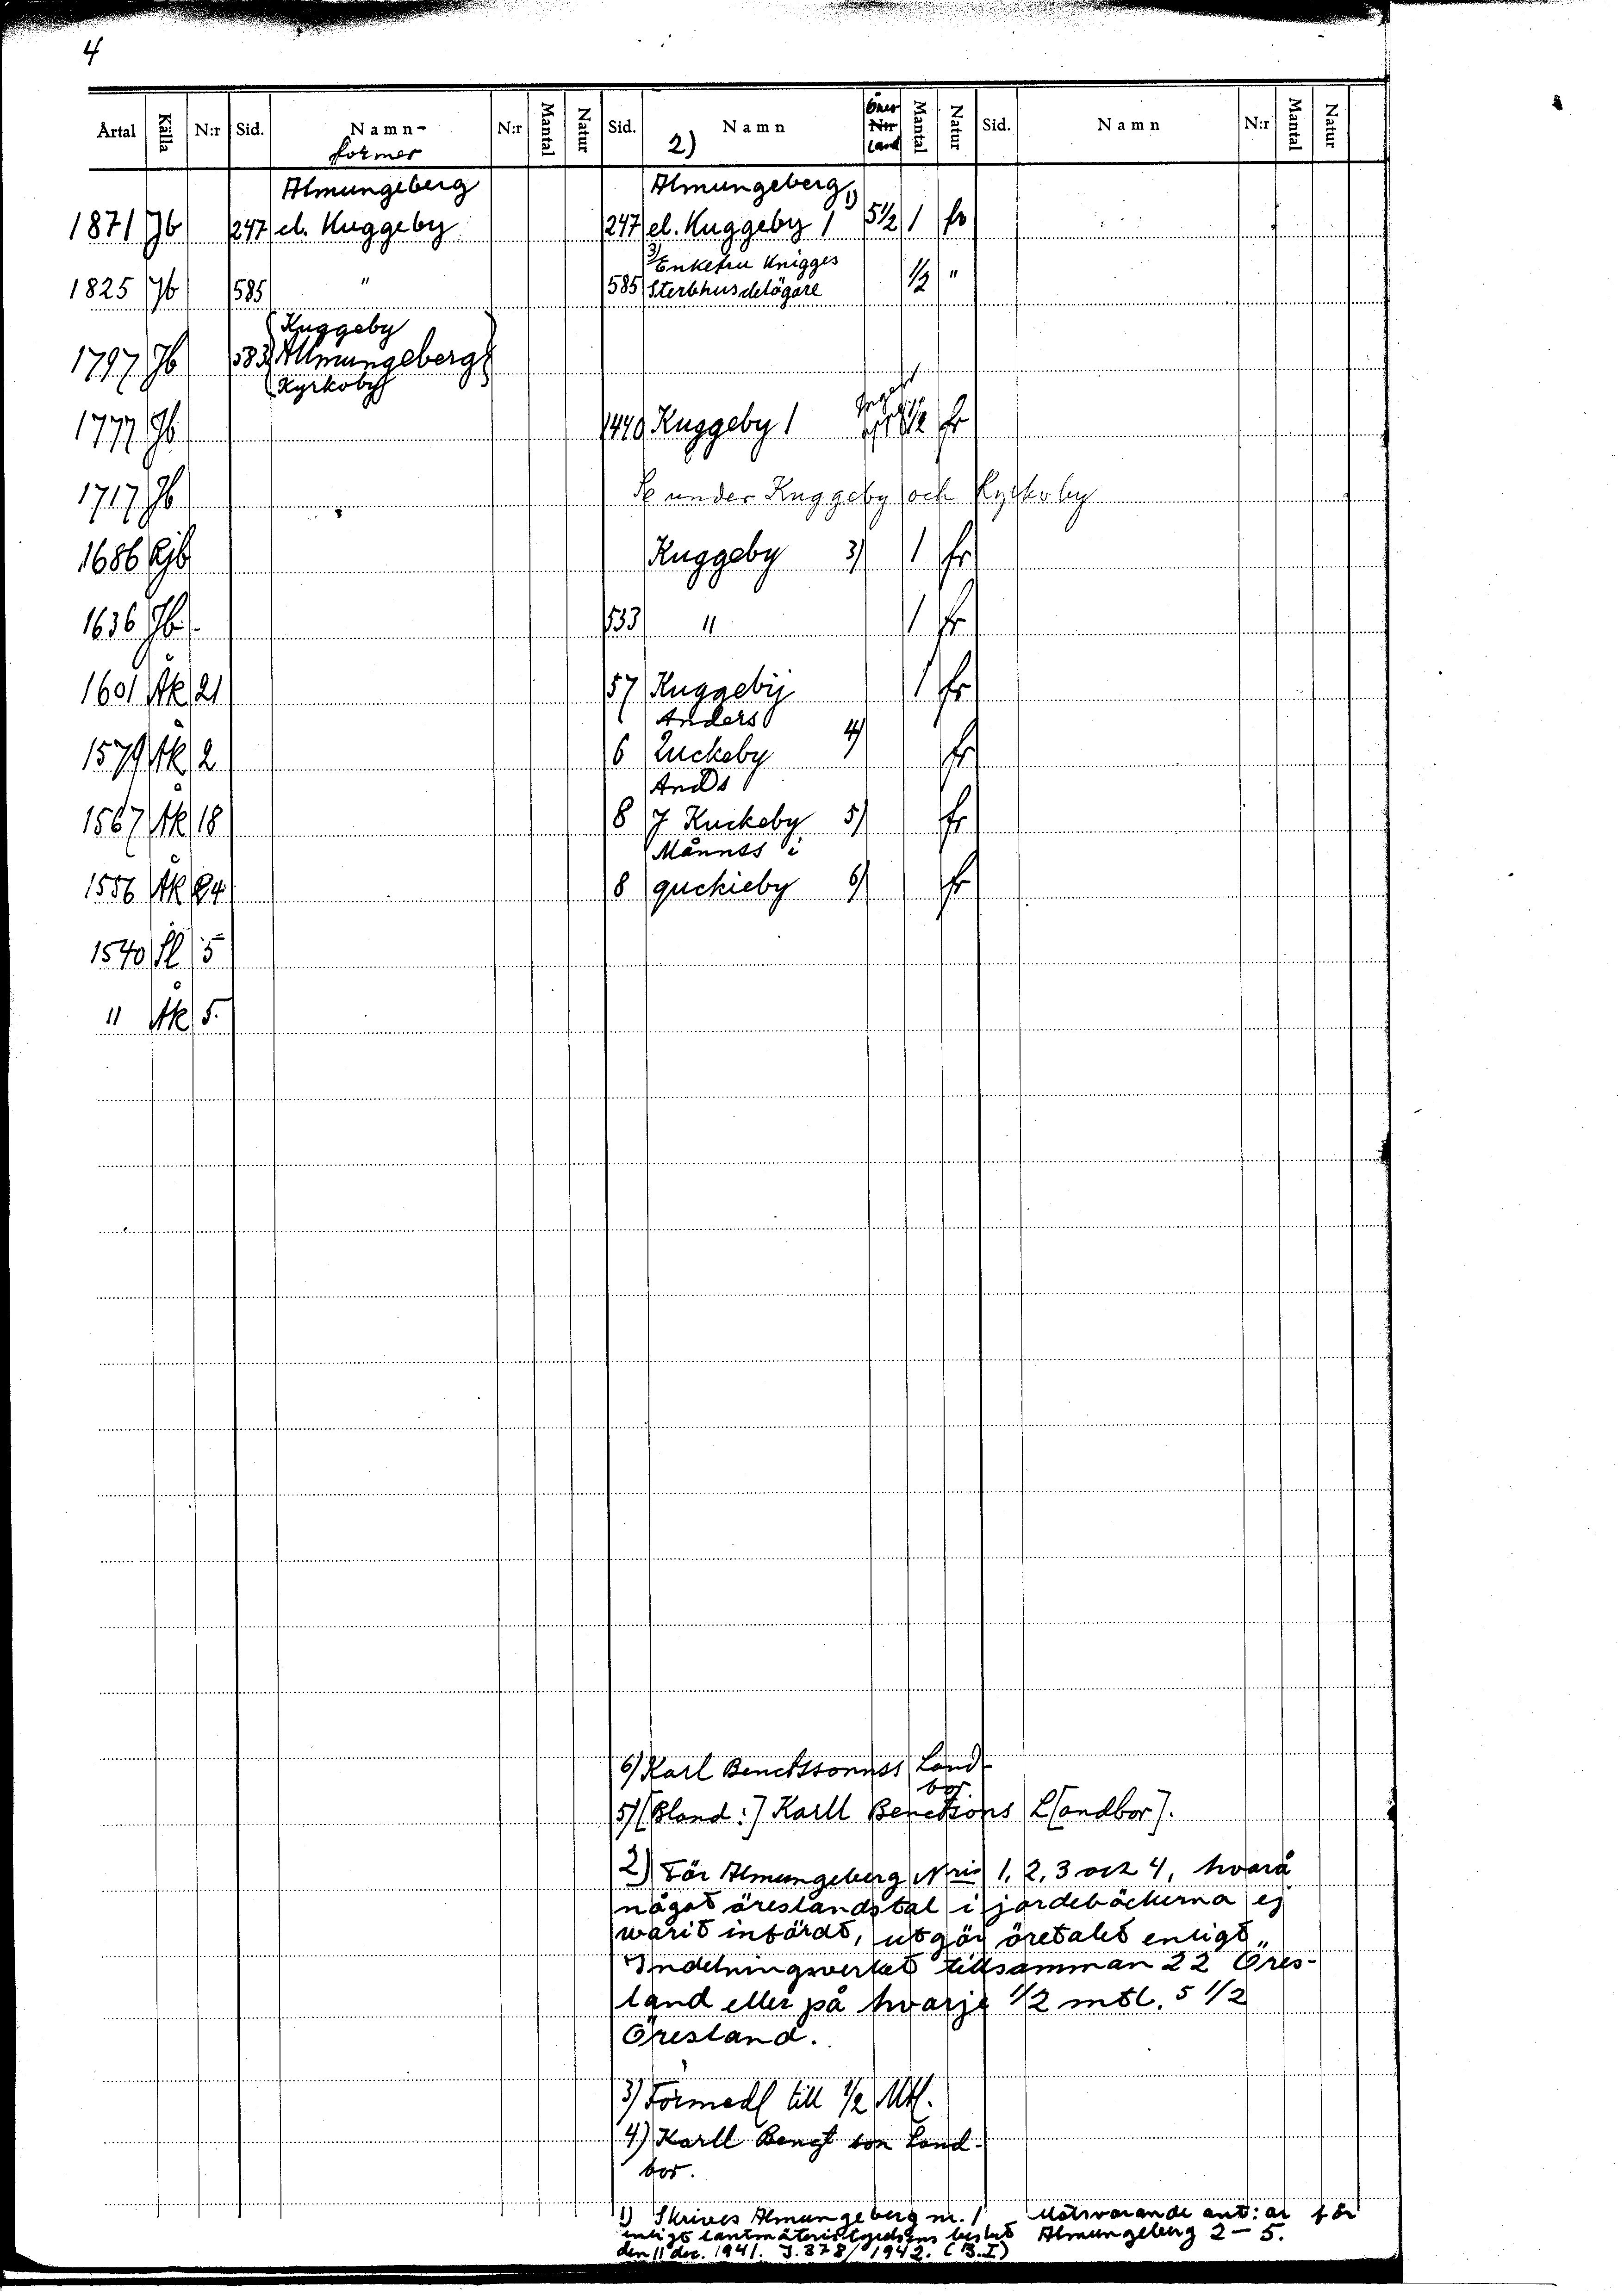 4
Årtal Källa N:r Sid. Namn- N:r Mantal Natur Sid. Namn Öres N:r Mantal Natur Sid. Namn N:r Mantal Natur
former 2) land
Almungeberg Almungeberg
1871 Jb 247 el. Kuggeby 247 el. Kuggeby 1 1) 5 1/2 1 fr
3) Enkefru Knigges
1825 Jb 585 " 585 Sterbhusdelägare 1/2 "
Kuggeby
1797 Jb 583 Allmungeberg
Kyrkoby
1777 Jb 1440 Kuggeby 1 1/2 fr
1717 Jb Se under Kuggeby och Kyrkoby
1686 Rjb Kuggeby 3) 1 fr
1636 Jb. 533 " 1 fr
1601 Åk 21 57 Kuggebij 1 fr
Anders
1579 Åk 2 6 Kuckeby 4) fr
Ands
1567 Åk 18 8 J Kuckeby 5) fr
Månnss i
1556 Åk 24 8 guckieby 6) fr
1540 Sl 5
" Åk 5.
6) Karl Benctssonnss Land-
bor
5) [Bland:] Karll Benctsons L[andbor].
2) För Almungeberg Nris 1, 2, 3 och 4, hvarå
något öreslandstal i jordeböckerna ej
warit infördt, utgör öretalet enligt
Indelningsverket tillsamman 22 Öres-
land eller på hvarje 1/2 mtl. 5 1/2
Öresland.
3) Förmedl till 1/2 Mtl.
4) Karll Bengt son Land-
bor.
1) Skrives Almungeberg nr. 1 Motsvarande ant:ar för
enligt lantmäteristyrelsens beslut Almungeberg 2-5.
den 11 dec. 1941. J. 378/1942. (B.I)